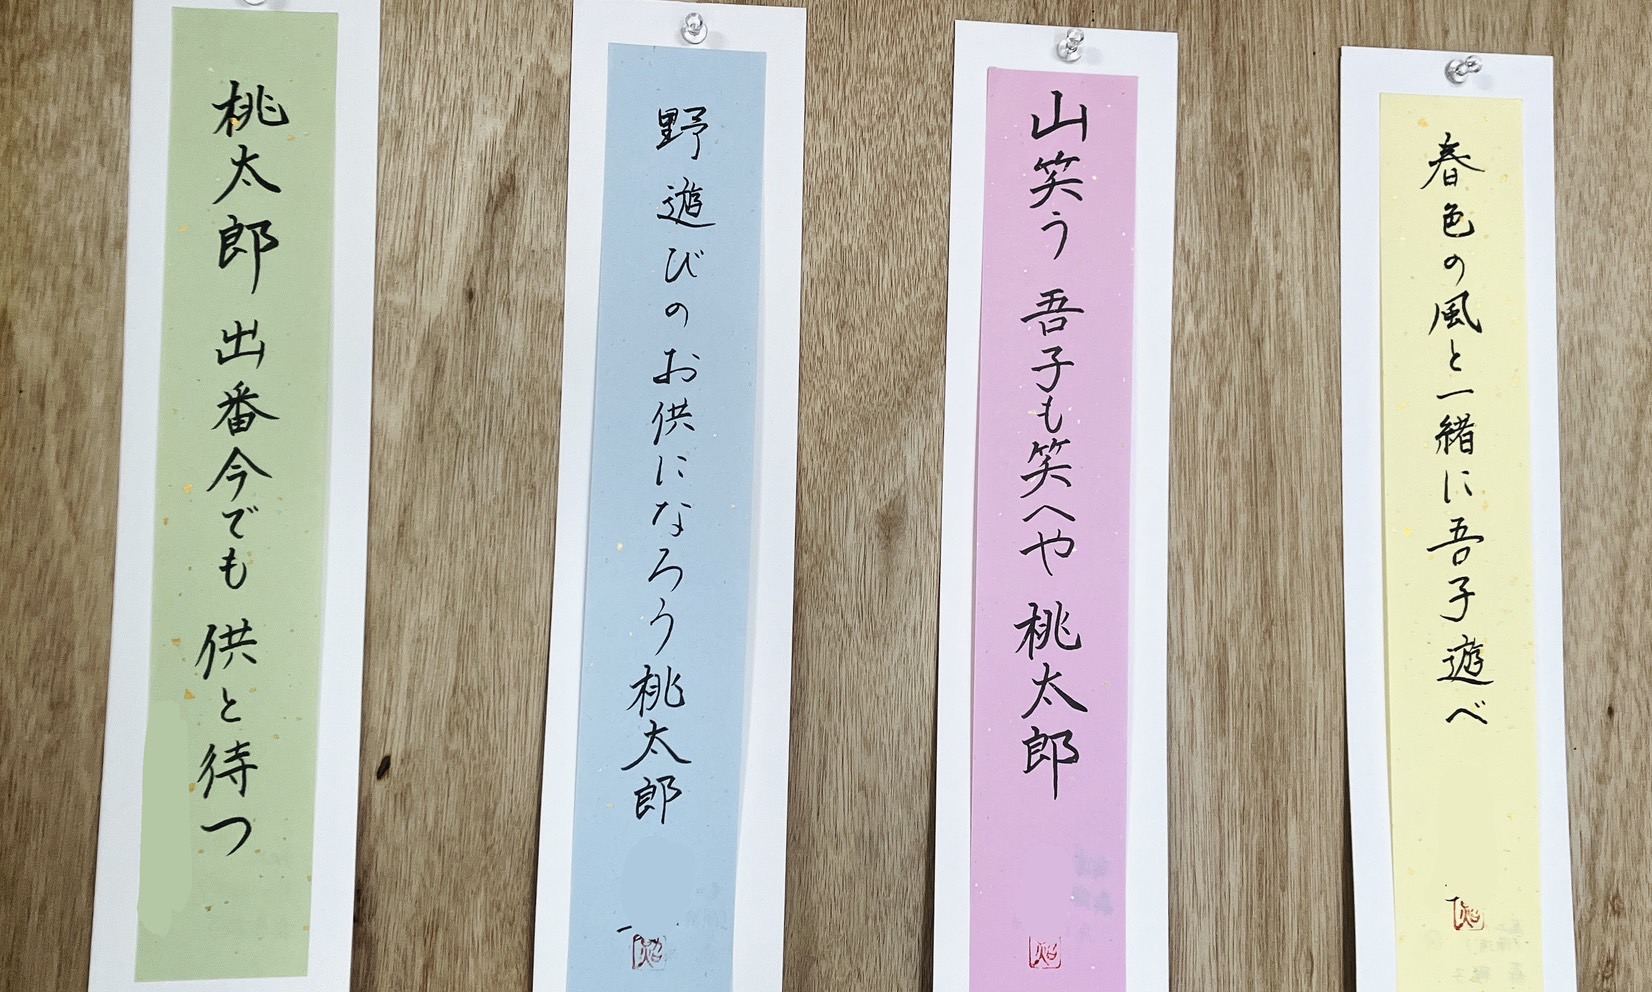 春色の風と一緒に吾子遊べ
山笑う 吾子も笑へや 桃太郎
野遊びのお供になろう桃太郎
桃太郎 出番今でも 供と待つ